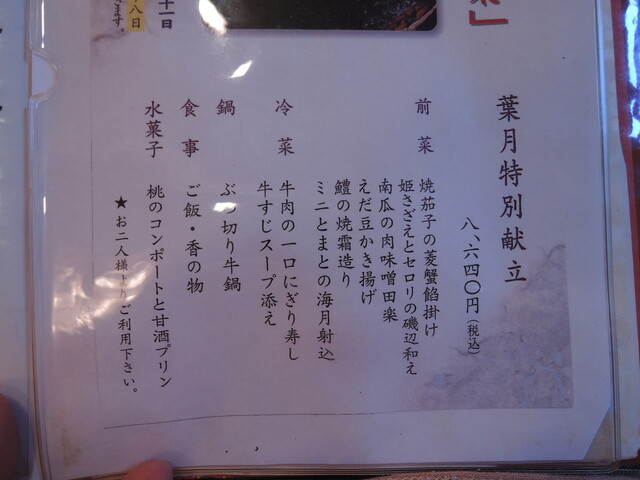 葉月特別献立
八、六四〇円（税込）
前菜
焼茄子の菱蟹餡掛け
姫さざえとセロリの磯辺和え
南瓜の肉味噌田楽
えだ豆かき揚げ
鱧の焼霜造り
ミニとまとの海月射込
冷菜
牛肉の一口にぎり寿し
牛すじスープ添え
鍋
ぶつ切り牛鍋
食事
ご飯・香の物
水菓子
桃のコンポートと甘酒プリン
★お二人様よりご利用下さい。
十一日
八日
きます。